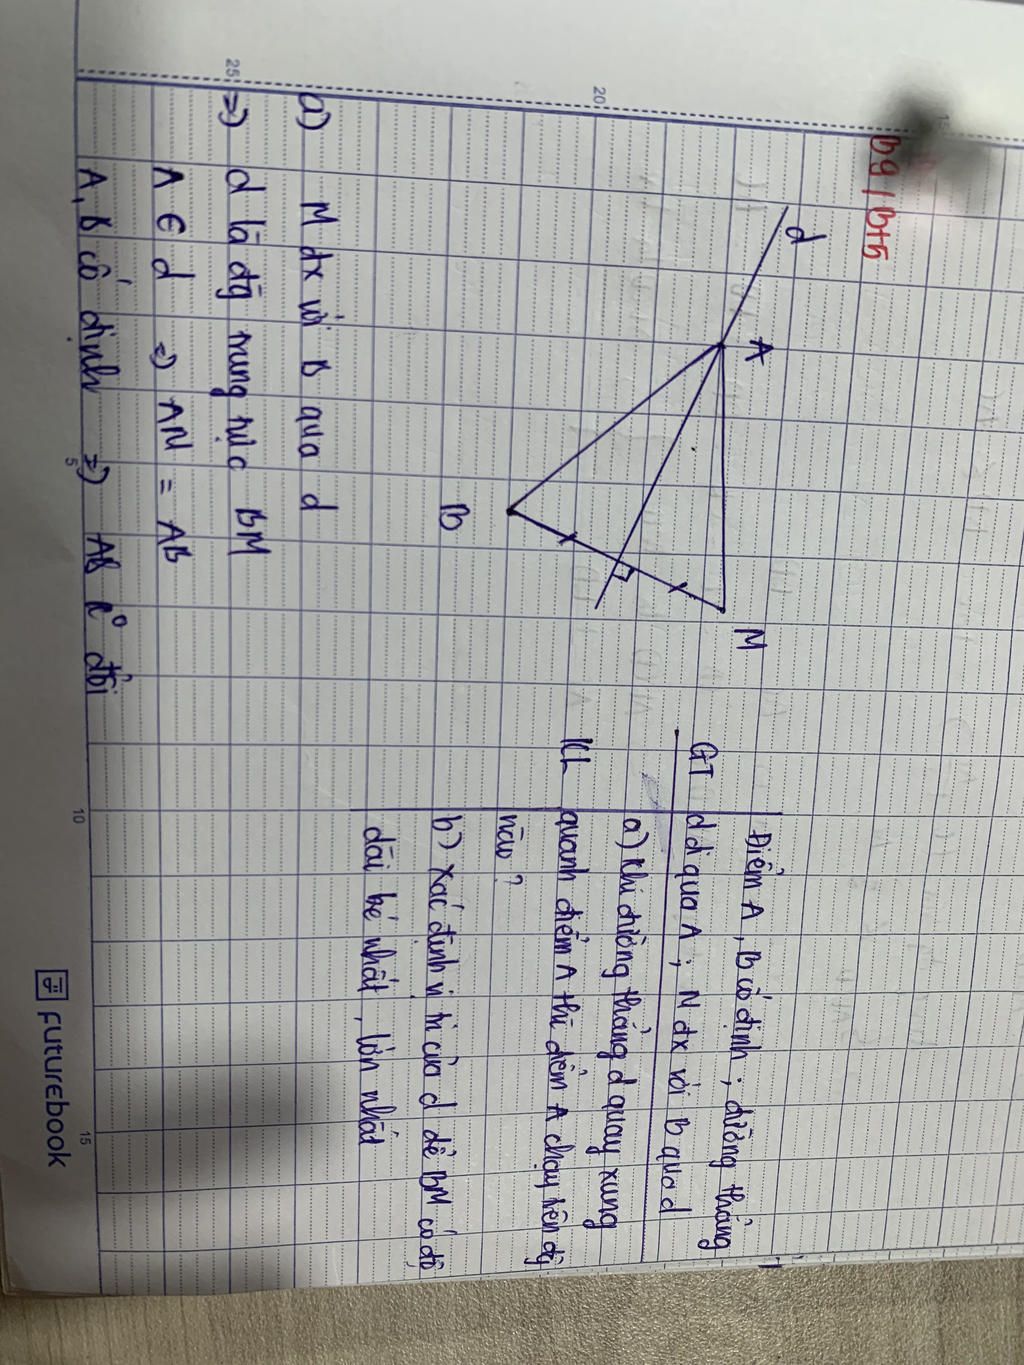 Bg / B+5
d
A
M
B
GT
Điểm A, B cố định ; đường thẳng
d đi qua A ; M đx với B qua d
KL
a) Khi đường thẳng d quay xung
quanh điểm A thì điểm A chạy trên đg
nào ?
b) Xác định vị trí của d để BM có độ
dài bé nhất, lớn nhất
a) M đx với B qua d
=> d là đg trung trực BM
A ∈ d => AM = AB
A, B cố định => AB k° đổi
20
25
5
10
15
futurebook